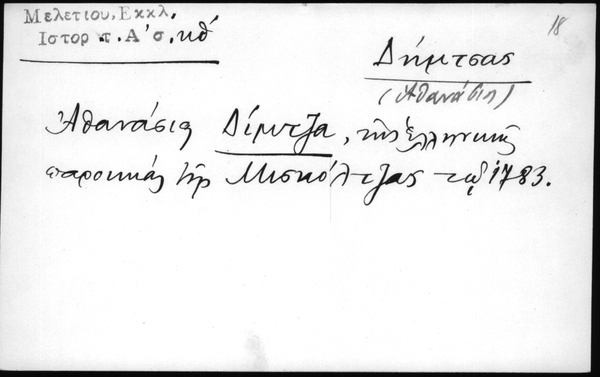 Μελετίου, Εκκλ.
Ιστορ τ. Α' σ. κθ'
18
Δήμιτσας
(Αθανάσιος)
Ἀθανάσιος Δίμιτζα, τῆς ἑλληνικῆς
παροικίας τῆς Μισκόλτζας τῷ 1783.